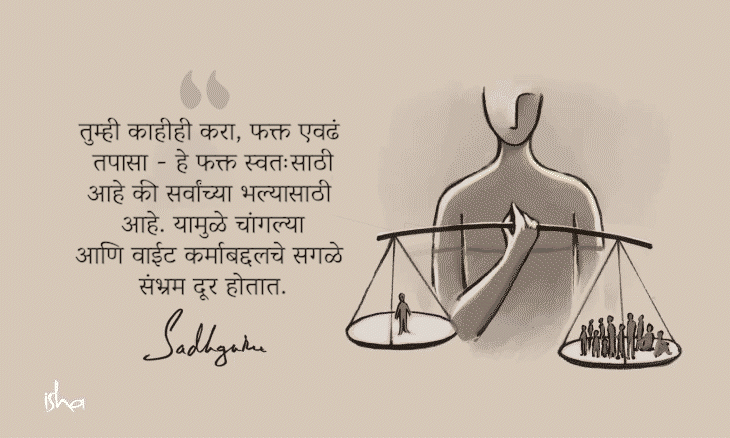 तुम्ही काहीही करा, फक्त एवढं
तपासा - हे फक्त स्वतःसाठी
आहे की सर्वांच्या भल्यासाठी
आहे. यामुळे चांगल्या
आणि वाईट कर्माबद्दलचे सगळे
संभ्रम दूर होतात.
Sadhguru
isha